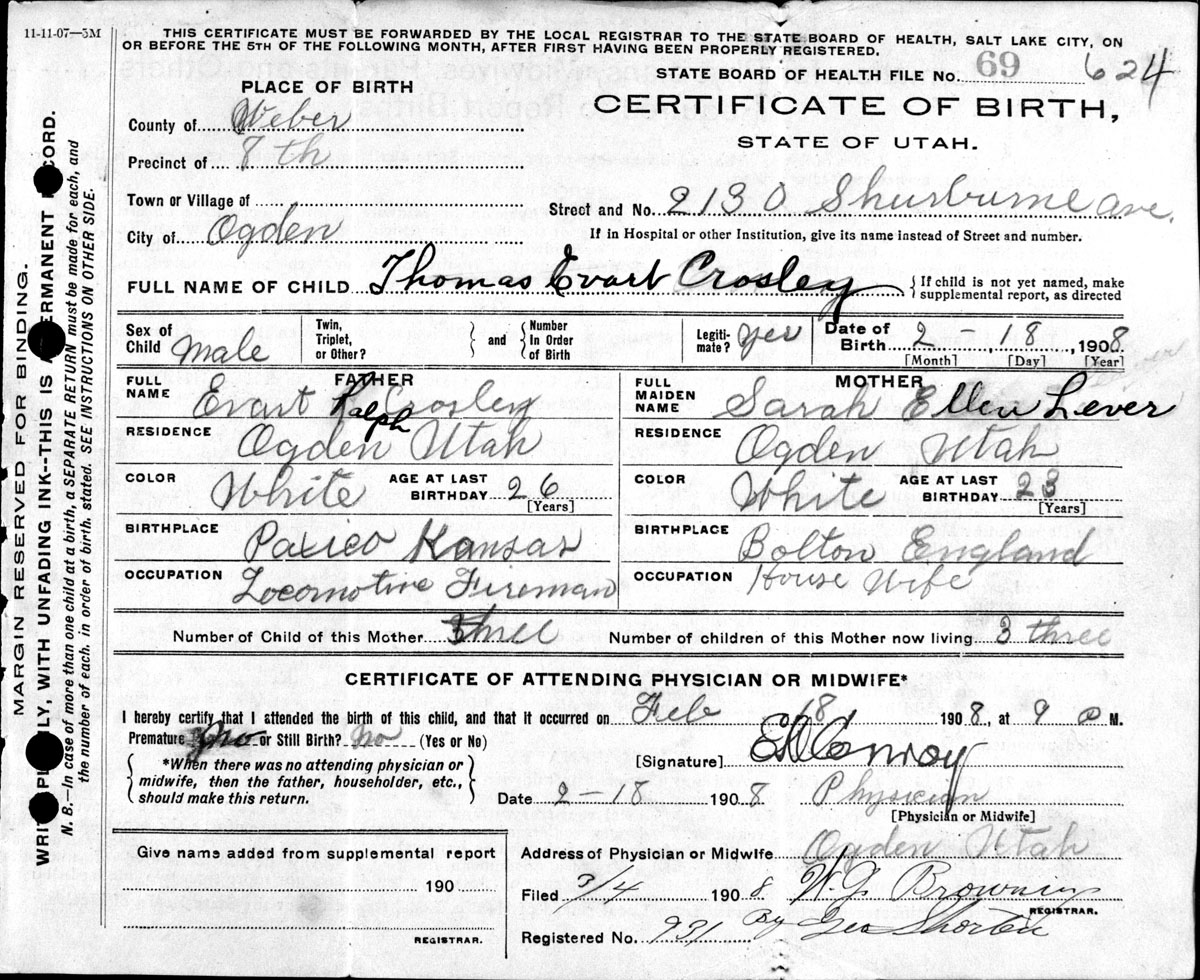 11-11-07—5M
THIS CERTIFICATE MUST BE FORWARDED BY THE LOCAL REGISTRAR TO THE STATE BOARD OF HEALTH, SALT LAKE CITY, ON
OR BEFORE THE 5TH OF THE FOLLOWING MONTH, AFTER FIRST HAVING BEEN PROPERLY REGISTERED.
STATE BOARD OF HEALTH FILE No. 69 624
PLACE OF BIRTH
CERTIFICATE OF BIRTH,
STATE OF UTAH.
County of Weber
Precinct of 8th
Town or Village of
City of Ogden
Street and No. 2130 Shurburne ave.
If in Hospital or other Institution, give its name instead of Street and number.
FULL NAME OF CHILD Thomas Evart Crosley { If child is not yet named, make
supplemental report, as directed
Sex of Child Male
Twin, Triplet, or Other? } and { Number In Order of Birth
Legiti-mate? yes
Date of Birth 2 - 18, 1908.
[Month] [Day] [Year]
FATHER
FULL NAME Evart Ralph Crosley
RESIDENCE Ogden Utah
COLOR White AGE AT LAST BIRTHDAY 26 [Years]
BIRTHPLACE Paxico Kansas
OCCUPATION Locomotive Fireman
MOTHER
FULL MAIDEN NAME Sarah Ellen Lever
RESIDENCE Ogden Utah
COLOR White AGE AT LAST BIRTHDAY 23 [Years]
BIRTHPLACE Bolton England
OCCUPATION House Wife
Number of Child of this Mother three Number of children of this Mother now living 3 three
CERTIFICATE OF ATTENDING PHYSICIAN OR MIDWIFE*
I hereby certify that I attended the birth of this child, and that it occurred on Feb 18 1908, at 9 a M.
Premature No or Still Birth? No (Yes or No)
{ *When there was no attending physician or
midwife, then the father, householder, etc.,
should make this return. }
[Signature] Conroy
Date 2-18 1908 Physician
[Physician or Midwife]
Give name added from supplemental report
190
REGISTRAR.
Address of Physician or Midwife Ogden Utah
Filed 3/4 1908 W. G. Browning
REGISTRAR.
Registered No. 931 By Geo Shorten
MARGIN RESERVED FOR BINDING.
WRITE PLAINLY, WITH UNFADING INK--THIS IS A PERMANENT RECORD.
N. B.—In case of more than one child at a birth, a SEPARATE RETURN must be made for each, and
the number of each, in order of birth, stated. SEE INSTRUCTIONS ON OTHER SIDE.